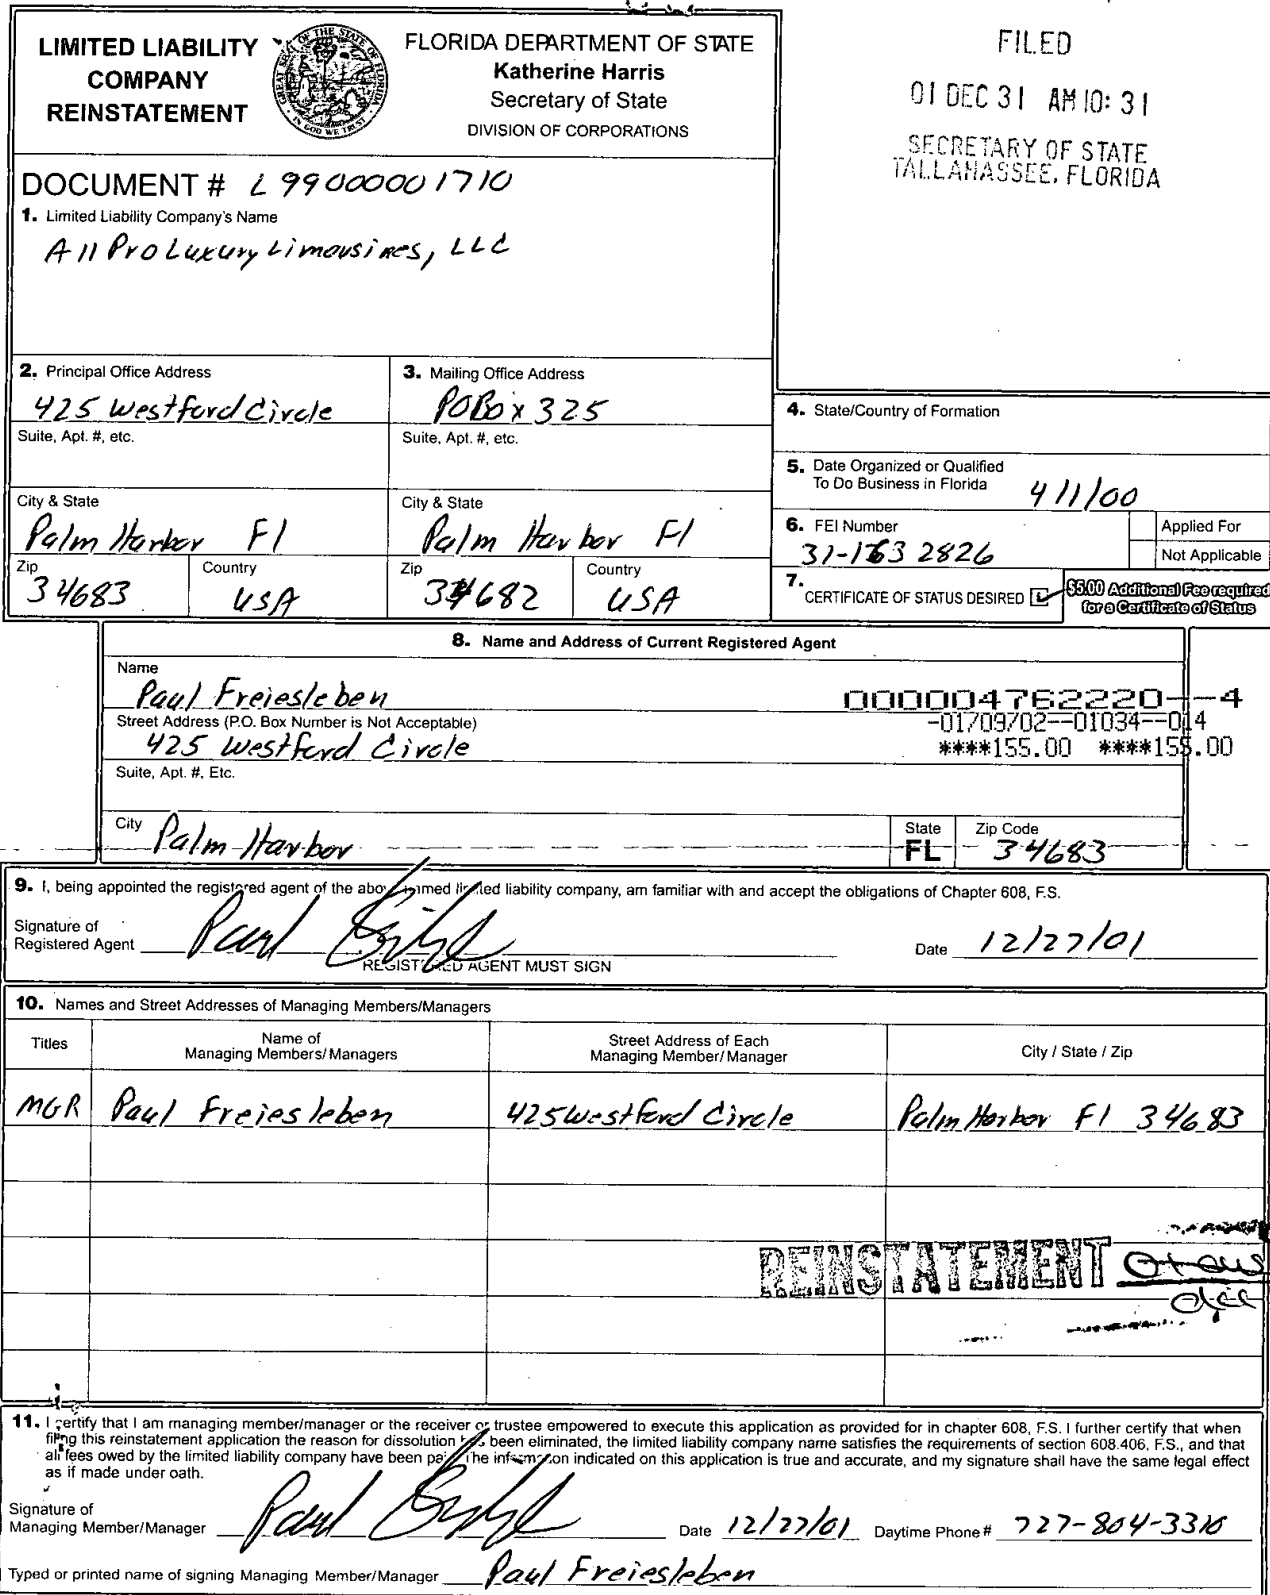 LIMITED LIABILITY
COMPANY
REINSTATEMENT
GREAT SEAL OF THE STATE OF FLORIDA
IN GOD WE TRUST
FLORIDA DEPARTMENT OF STATE
Katherine Harris
Secretary of State
DIVISION OF CORPORATIONS
FILED
01 DEC 31 AM 10: 31
SECRETARY OF STATE
TALLAHASSEE, FLORIDA
DOCUMENT # L99000001710
1. Limited Liability Company's Name
All Pro Luxury Limousines, LLC
2. Principal Office Address
425 Westford Circle
Suite, Apt. #, etc.
City & State
Palm Harbor Fl
Zip
34683
Country
USA
3. Mailing Office Address
PO Box 325
Suite, Apt. #, etc.
City & State
Palm Harbor Fl
Zip
34682
Country
USA
4. State/Country of Formation
5. Date Organized or Qualified
To Do Business in Florida 4/1/00
6. FEI Number
31-1632826
Applied For
Not Applicable
7. CERTIFICATE OF STATUS DESIRED
$5.00 Additional Fee required
for a Certificate of Status
8. Name and Address of Current Registered Agent
Name
Paul Freiesleben
000004762220--4
-01/09/02--01034--014
****155.00 ****155.00
Street Address (P.O. Box Number is Not Acceptable)
425 Westford Circle
Suite, Apt. #, Etc.
City Palm Harbor
State
FL
Zip Code
34683
9. I, being appointed the registered agent of the above named limited liability company, am familiar with and accept the obligations of Chapter 608, F.S.
Signature of
Registered Agent Paul
REGISTERED AGENT MUST SIGN
Date 12/27/01
10. Names and Street Addresses of Managing Members/Managers
Titles
Name of
Managing Members/Managers
Street Address of Each
Managing Member/Manager
City / State / Zip
MGR Paul Freiesleben 425 Westford Circle Palm Harbor Fl 34683
REINSTATEMENT
11. I certify that I am managing member/manager or the receiver or trustee empowered to execute this application as provided for in chapter 608, F.S. I further certify that when
filing this reinstatement application the reason for dissolution has been eliminated, the limited liability company name satisfies the requirements of section 608.406, F.S., and that
all fees owed by the limited liability company have been paid. The information indicated on this application is true and accurate, and my signature shall have the same legal effect
as if made under oath.
Signature of
Managing Member/Manager Paul
Date 12/27/01 Daytime Phone # 727-804-3310
Typed or printed name of signing Managing Member/Manager Paul Freiesleben